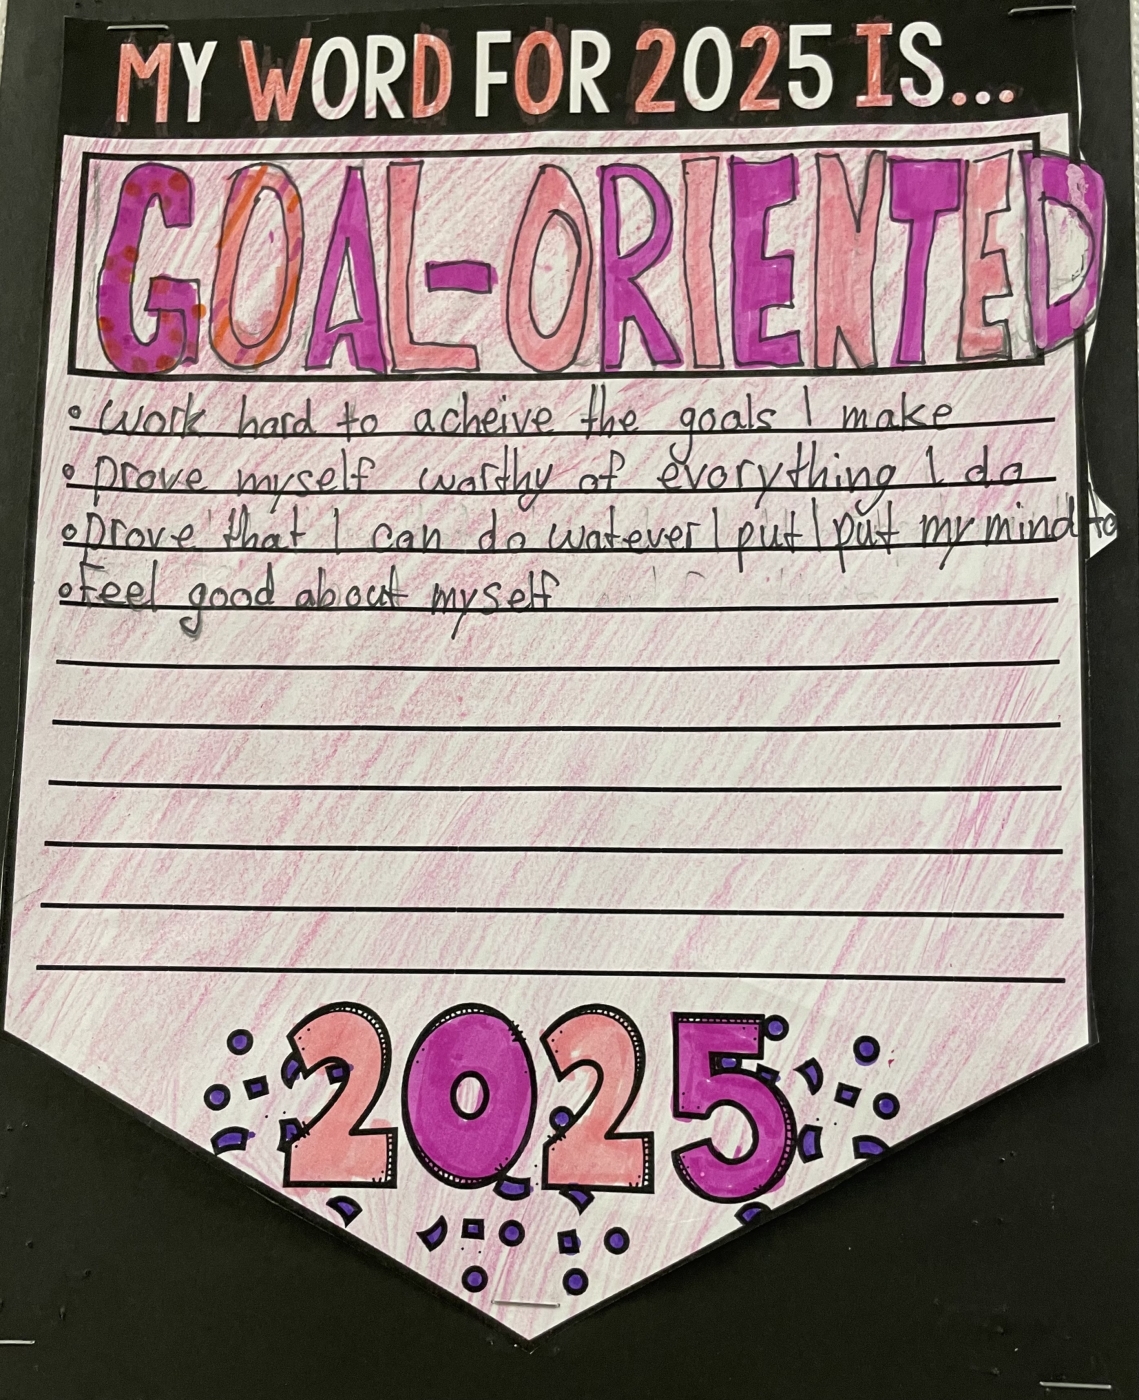 MY WORD FOR 2025 IS...
GOAL-ORIENTED
• work hard to acheive the goals I make
• prove myself worthy of everything I do
• prove that I can do watever I put I put my mind to
• Feel good about myself
2025